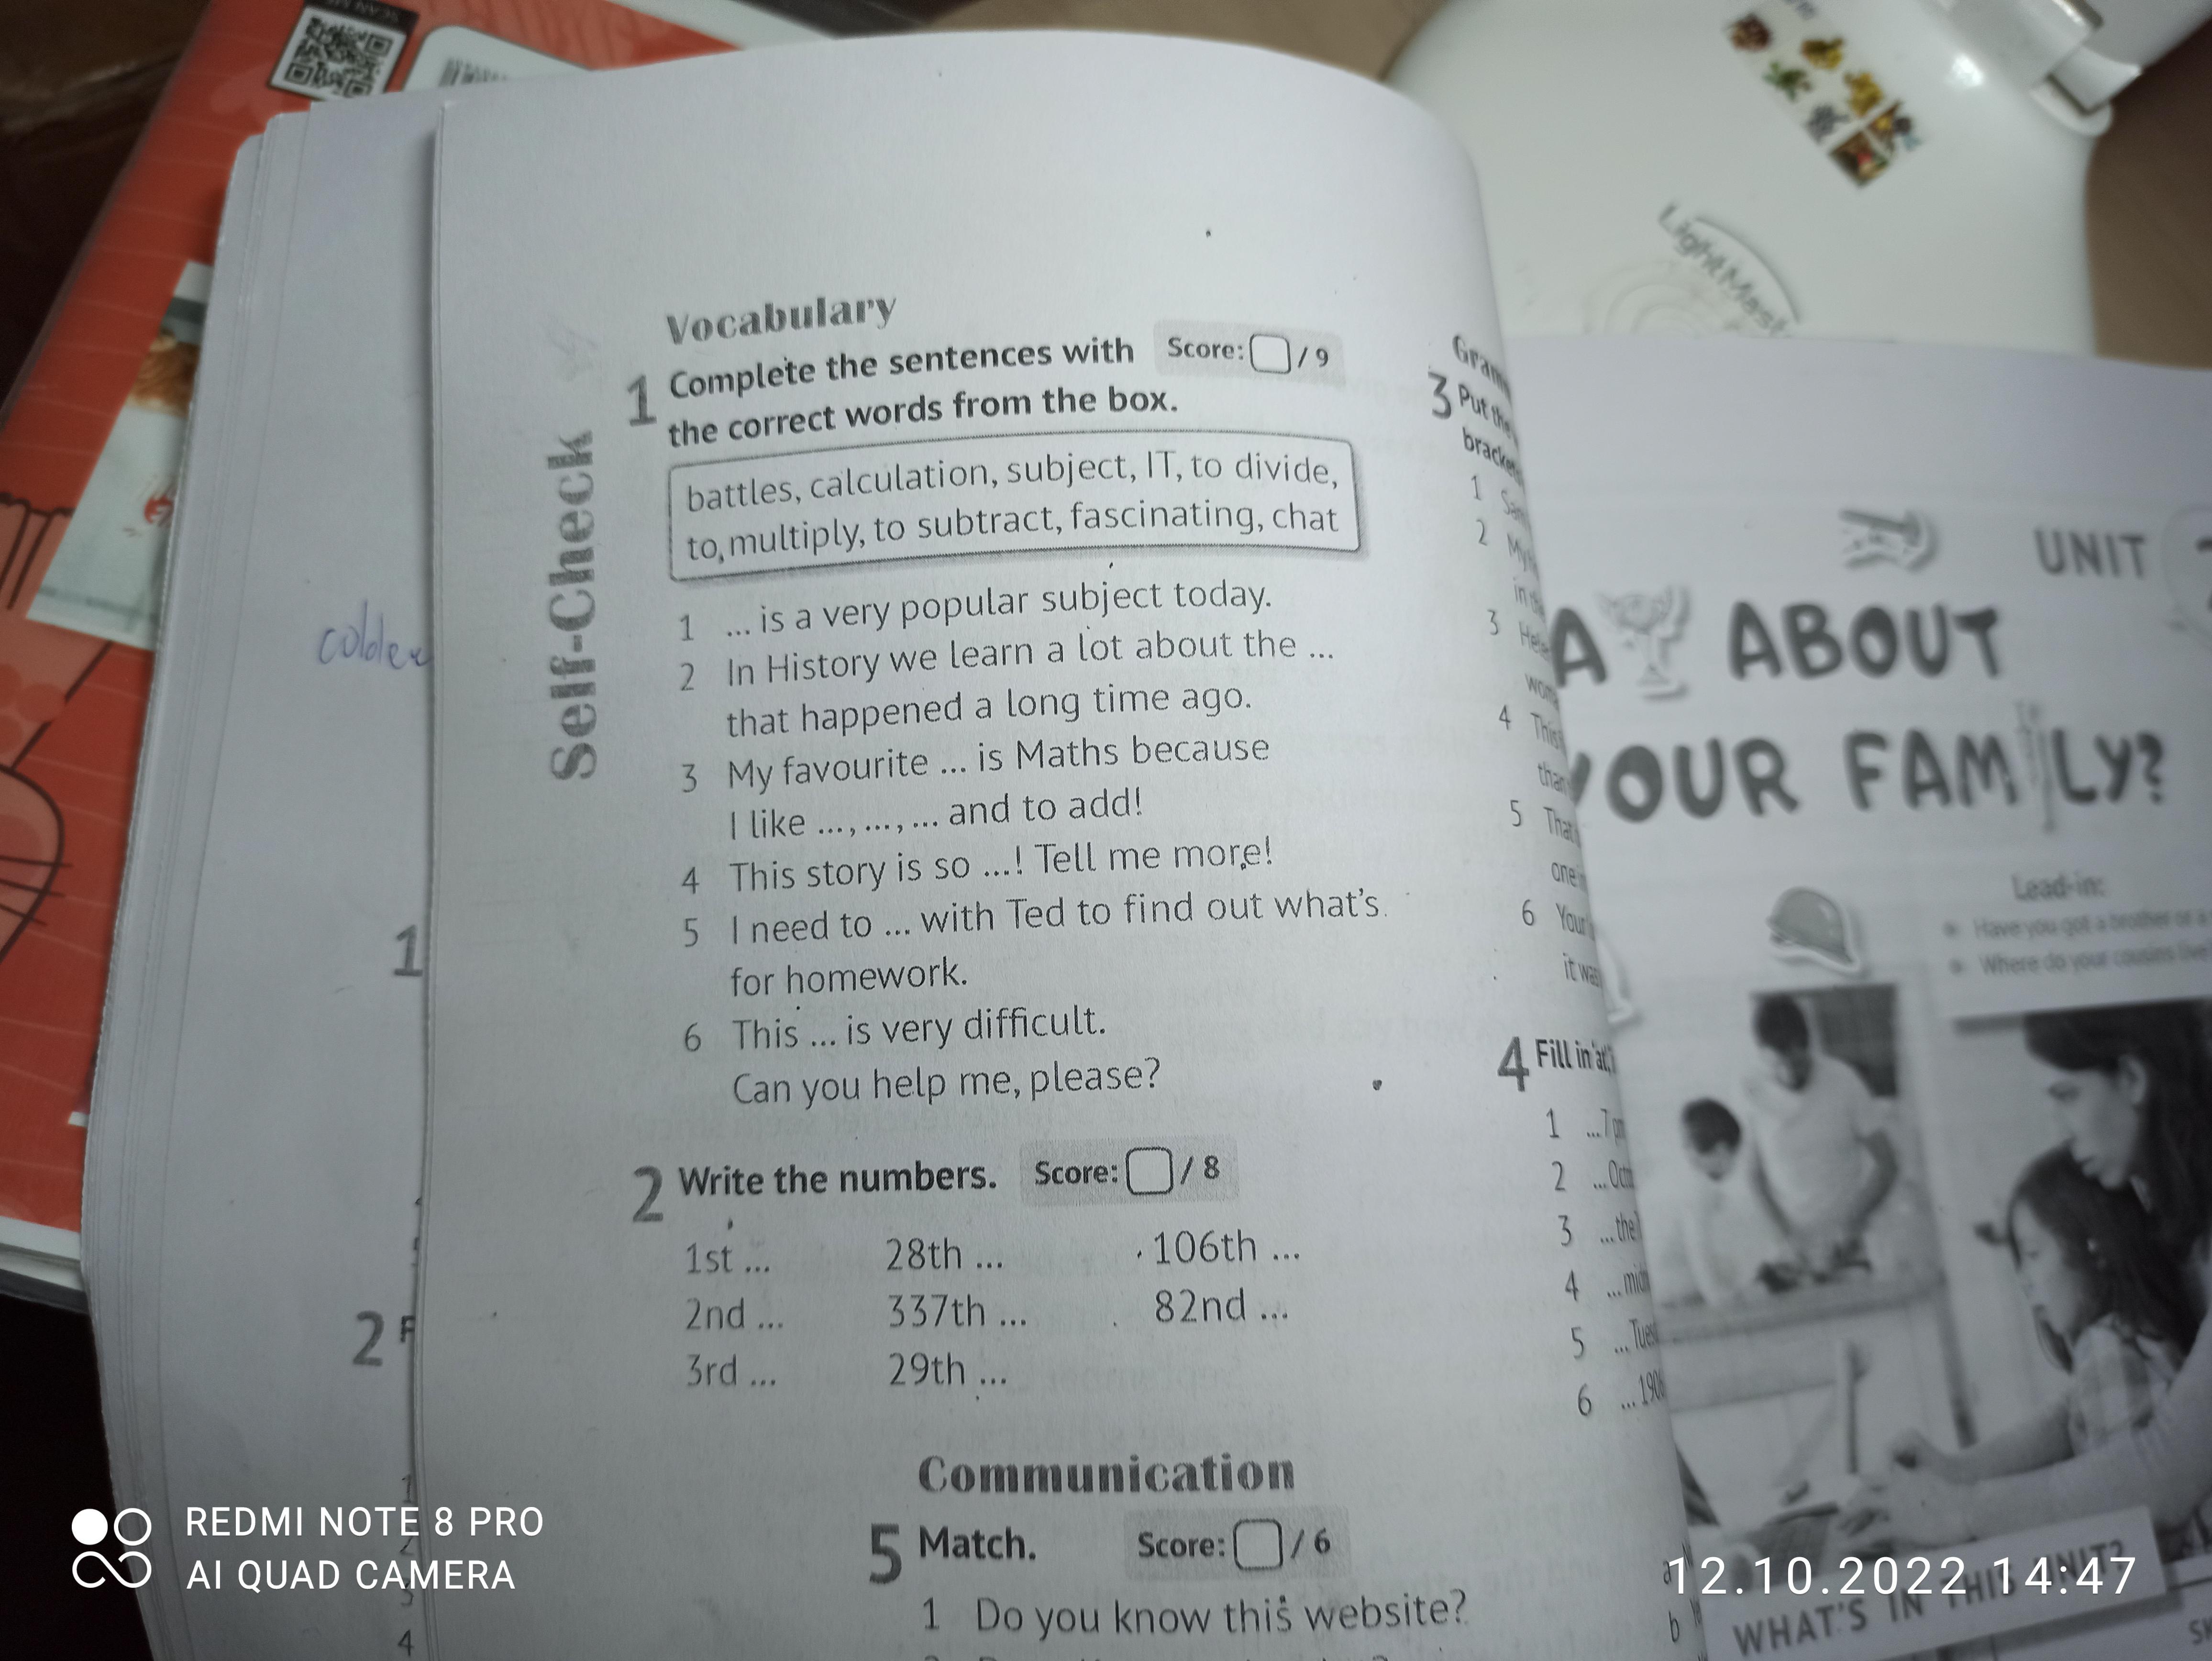 SCAN ME
Self-Check
Vocabulary
1 Complete the sentences with Score: / 9
the correct words from the box.
battles, calculation, subject, IT, to divide,
to multiply, to subtract, fascinating, chat
1 ... is a very popular subject today.
2 In History we learn a lot about the ...
that happened a long time ago.
3 My favourite ... is Maths because
I like ..., ..., ... and to add!
4 This story is so ...! Tell me more!
5 I need to ... with Ted to find out what's
for homework.
6 This ... is very difficult.
Can you help me, please?
2 Write the numbers. Score: / 8
1st ... 28th ... 106th ...
2nd ... 337th ... 82nd ...
3rd ... 29th ...
Communication
5 Match. Score: / 6
1 Do you know this website?
colder
1
2 F
4
3 Put the
1
2
in the
3
4 This
than
5 That
one
6 Your
it was
4 Fill in 'at,'
1 ...7
2 ...
3 ...the
4 ...
5 ...Tues
6 ...
a
b
UNIT
A ABOUT
YOUR FAMILY?
Lead-in:
Have you got a brother or a
Where do your cousins live
WHAT'S IN THIS UNIT?
REDMI NOTE 8 PRO
AI QUAD CAMERA
12.10.2022 14:47